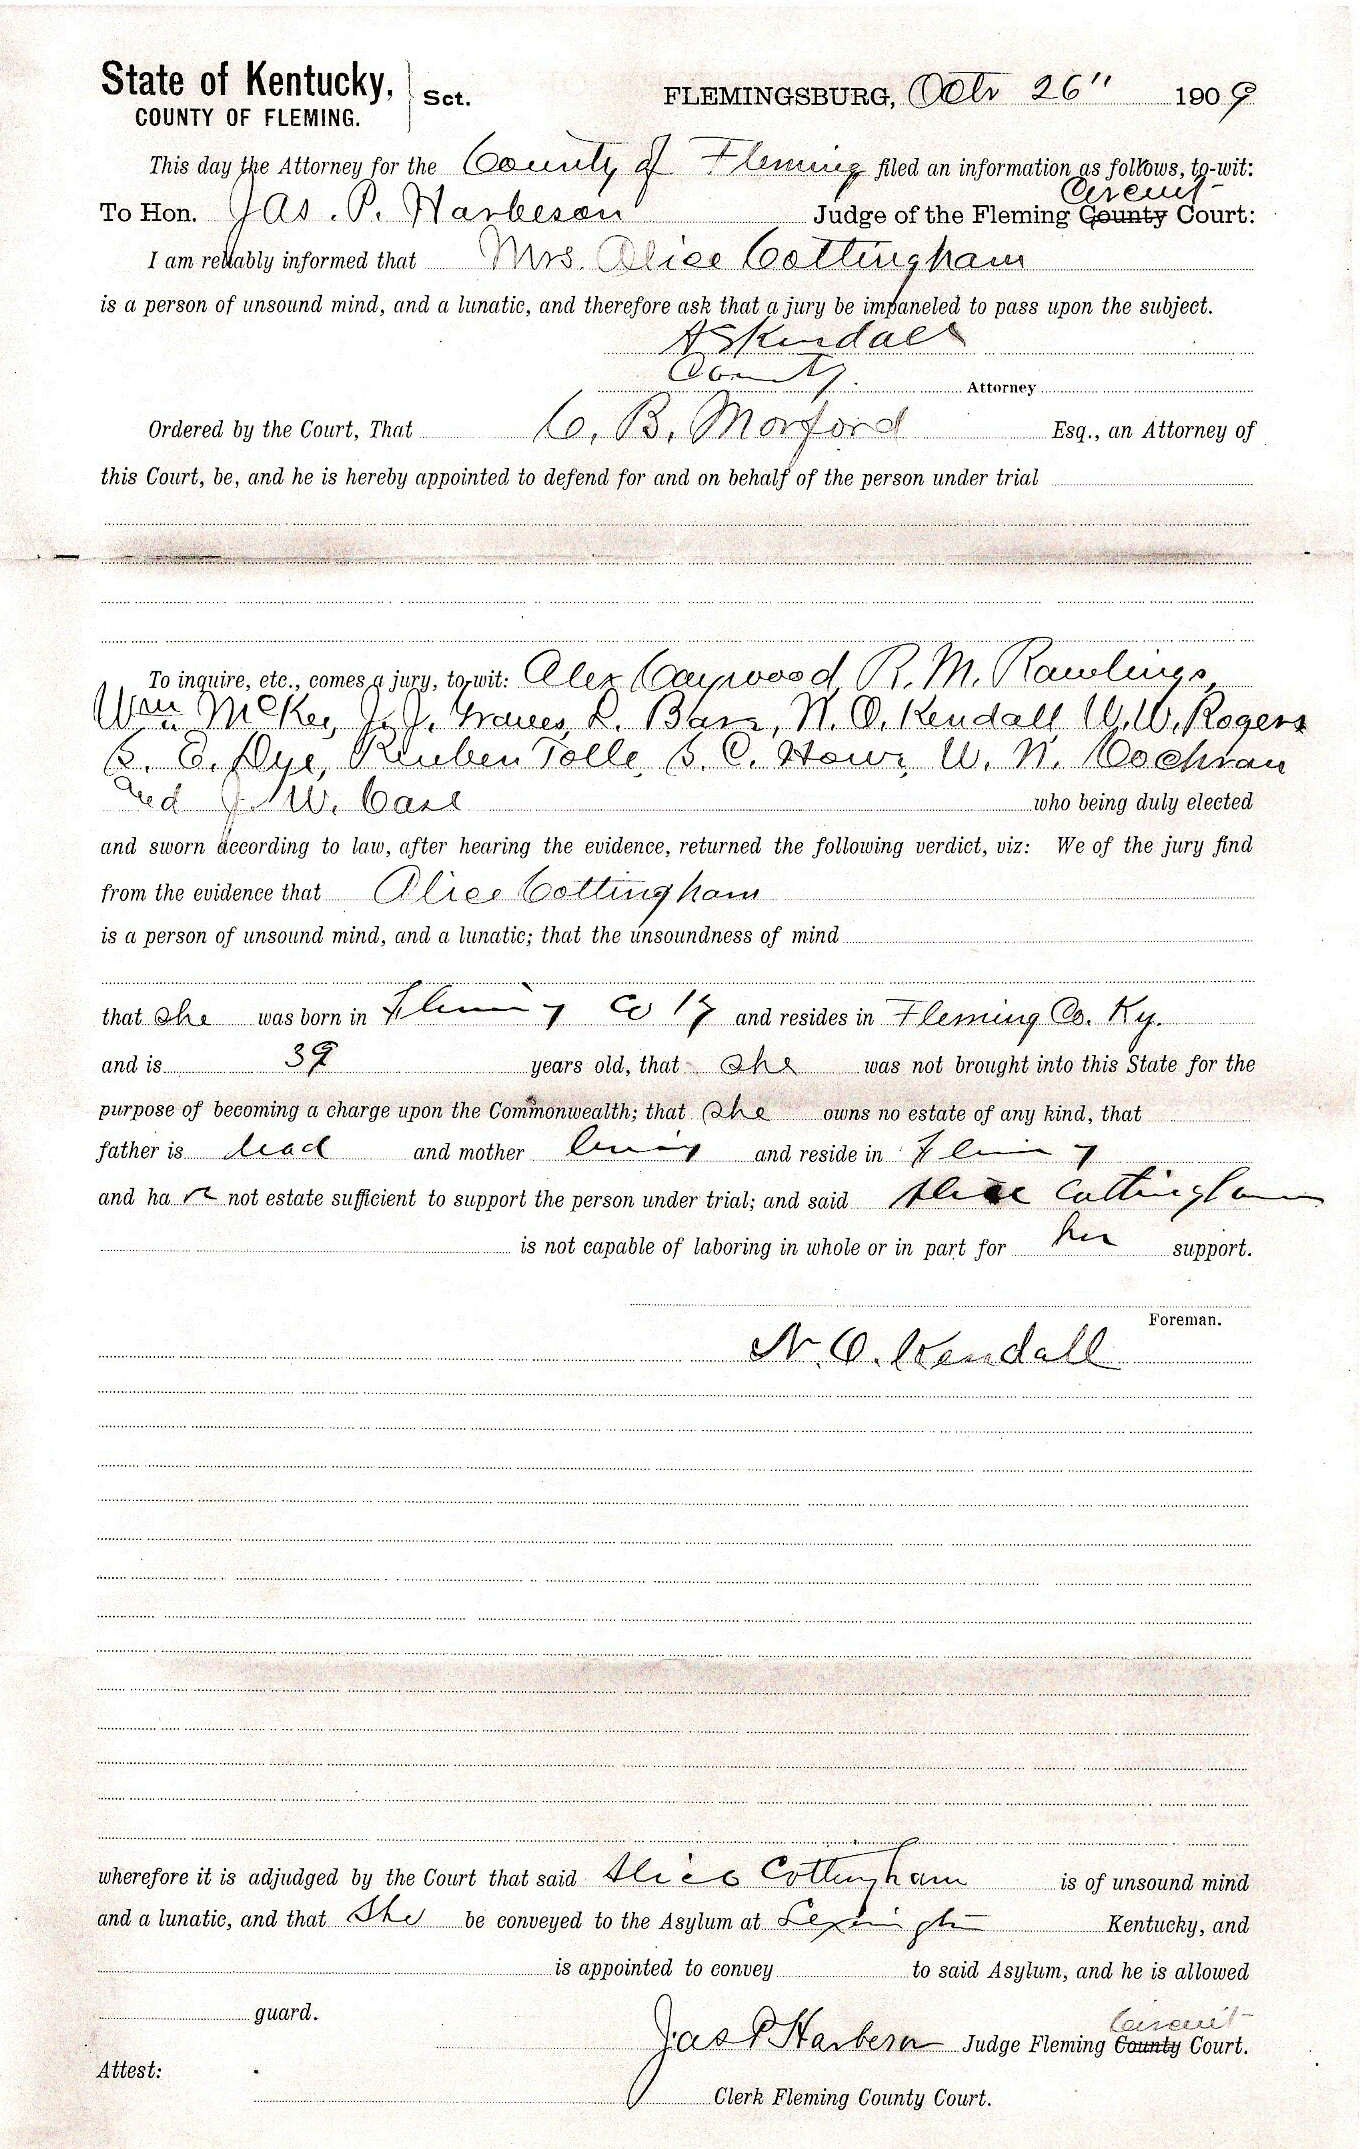 State of Kentucky, Sct. FLEMINGSBURG, Octr 26" 1909
COUNTY OF FLEMING.
This day the Attorney for the County of Fleming filed an information as follows, to-wit:
Circuit
To Hon. Jas. P. Harbeson Judge of the Fleming County Court:
I am reliably informed that Mrs. Alice Cottingham
is a person of unsound mind, and a lunatic, and therefore ask that a jury be impaneled to pass upon the subject.
A S Kendall
County Attorney
Ordered by the Court, That C. B. Morford Esq., an Attorney of
this Court, be, and he is hereby appointed to defend for and on behalf of the person under trial
To inquire, etc., comes a jury, to-wit: Alex Caywood, R. M. Rawlings,
Wm McKee, J. J. Graves, L. Barr, N. O. Kendall W. W. Rogers
S. E. Dye, Reuben Tolle, S. C. Howe, W. N. Cochran
and J. W. Case who being duly elected
and sworn according to law, after hearing the evidence, returned the following verdict, viz: We of the jury find
from the evidence that Alice Cottingham
is a person of unsound mind, and a lunatic; that the unsoundness of mind
that she was born in Fleming Co Ky and resides in Fleming Co. Ky.
and is 39 years old, that she was not brought into this State for the
purpose of becoming a charge upon the Commonwealth; that she owns no estate of any kind, that
father is dead and mother living and reside in Fleming
and have not estate sufficient to support the person under trial; and said Alice Cottingham
is not capable of laboring in whole or in part for her support.
Foreman.
N. O. Kendall
wherefore it is adjudged by the Court that said Alice Cottingham is of unsound mind
and a lunatic, and that she be conveyed to the Asylum at Lexington Kentucky, and
is appointed to convey to said Asylum, and he is allowed
guard.
Circuit
Jas P Harbeson Judge Fleming County Court.
Attest:
Clerk Fleming County Court.